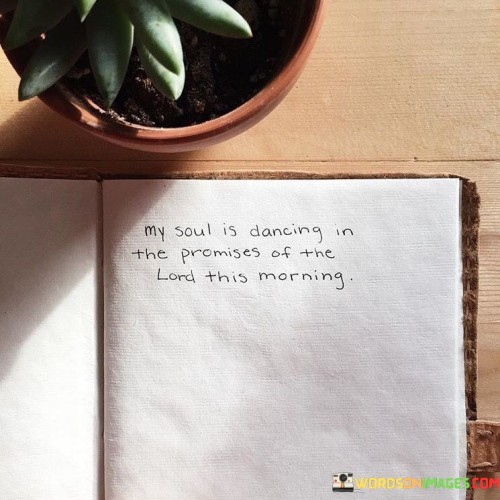 my soul is dancing in
the promises of the
Lord this morning.
WORDSONIMAGES.COM